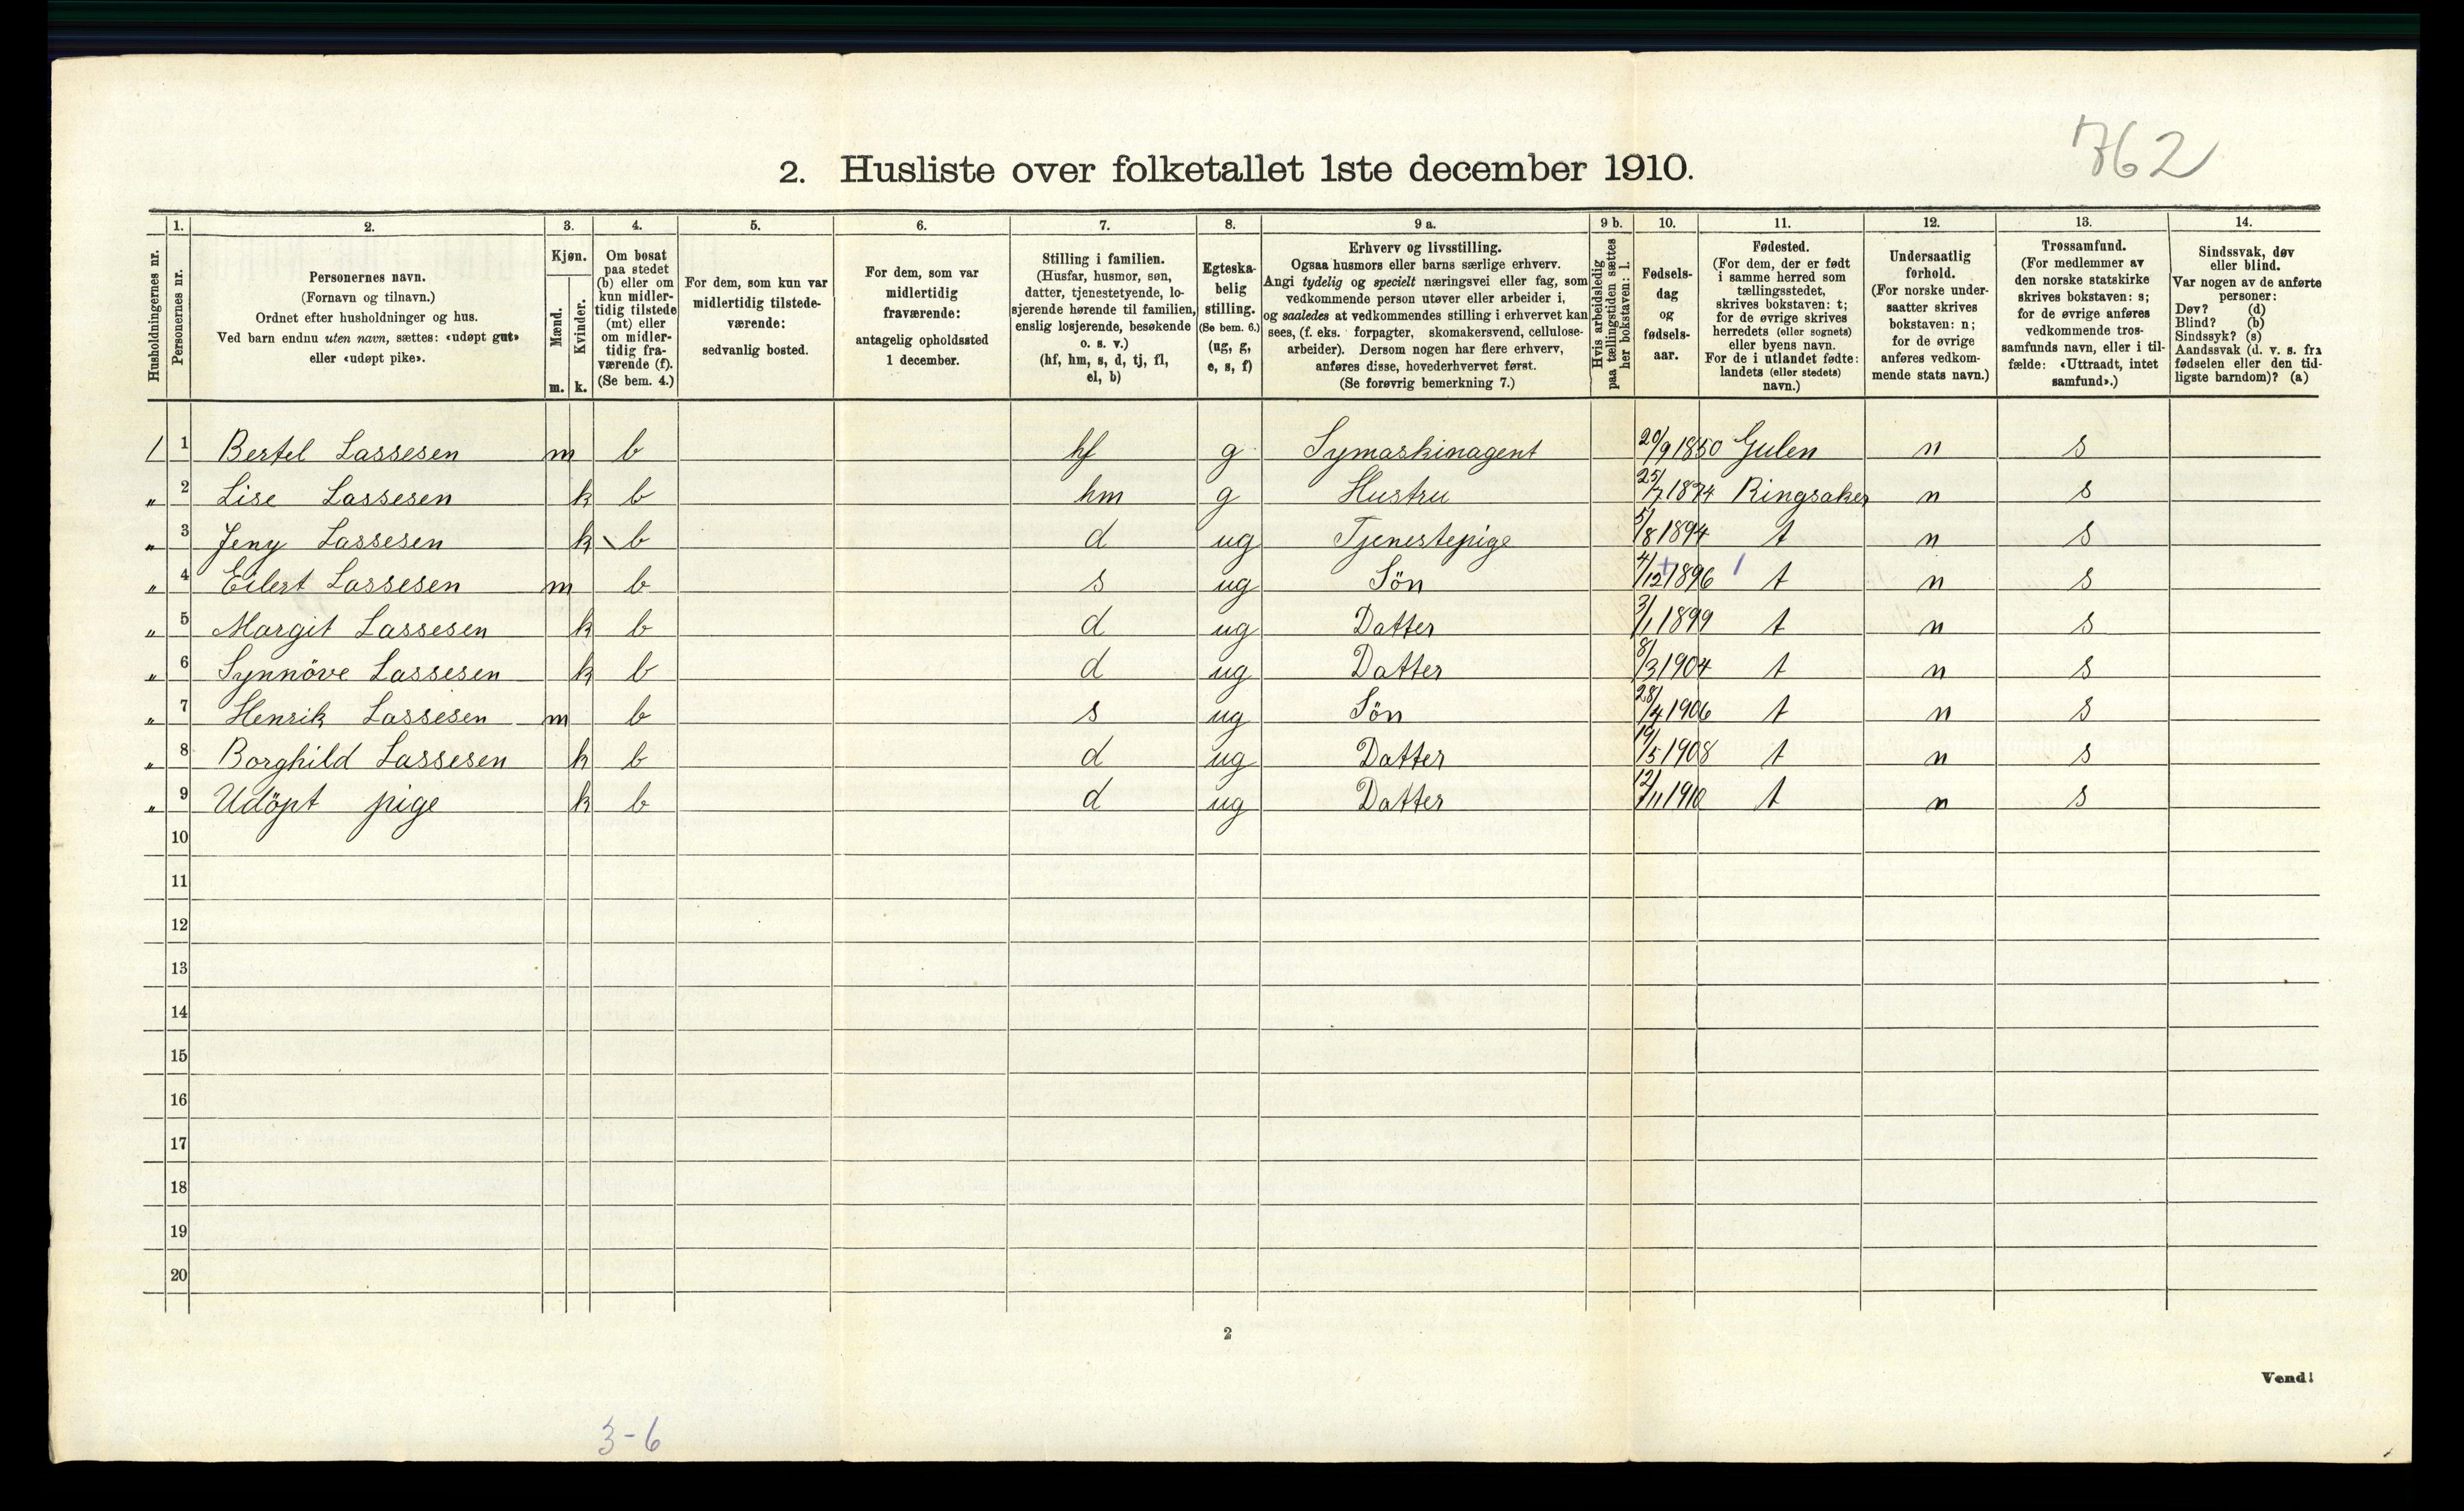 762
2. Husliste over folketallet 1ste december 1910.
1. 2. 3. 4. 5. 6. 7. 8. 9 a. 9 b. 10. 11. 12. 13. 14.
Husholdningernes nr.
Personernes nr.
Personernes navn.
(Fornavn og tilnavn.)
Ordnet efter husholdninger og hus.
Ved barn endnu uten navn, sættes: «udøpt gut»
eller «udøpt pike».
Kjøn.
Mænd.
Kvinder.
m. k.
Om bosat
paa stedet
(b) eller om
kun midler-
tidig tilstede
(mt) eller
om midler-
tidig fra-
værende (f).
(Se bem. 4.)
For dem, som kun var
midlertidig tilstede-
værende:
sedvanlig bosted.
For dem, som var
midlertidig
fraværende:
antagelig opholdssted
1 december.
Stilling i familien.
(Husfar, husmor, søn,
datter, tjenestetyende, lo-
sjerende hørende til familien,
enslig losjerende, besøkende
o. s. v.)
(hf, hm, s, d, tj, fl,
el, b)
Egteska-
belig
stilling.
(Se bem. 6.)
(ug, g,
e, s, f)
Erhverv og livsstilling.
Ogsaa husmors eller barns særlige erhverv.
Angi tydelig og specielt næringsvei eller fag, som
vedkommende person utøver eller arbeider i,
og saaledes at vedkommendes stilling i erhvervet kan
sees, (f. eks. forpagter, skomakersvend, cellulose-
arbeider). Dersom nogen har flere erhverv,
anføres disse, hovederhvervet først.
(Se forøvrig bemerkning 7.)
Hvis arbeidsledig
paa tællingstiden sættes
her bokstaven: l.
Fødsels-
dag
og
fødsels-
aar.
Fødested.
(For dem, der er født
i samme herred som
tællingsstedet,
skrives bokstaven: t;
for de øvrige skrives
herredets (eller sognets)
eller byens navn.
For de i utlandet fødte:
landets (eller stedets)
navn.)
Undersaatlig
forhold.
(For norske under-
saatter skrives
bokstaven: n;
for de øvrige
anføres vedkom-
mende stats navn.)
Trossamfund.
(For medlemmer av
den norske statskirke
skrives bokstaven: s;
for de øvrige anføres
vedkommende tros-
samfunds navn, eller i til-
fælde: «Uttraadt, intet
samfund».)
Sindssvak, døv
eller blind.
Var nogen av de anførte
personer:
Døv? (d)
Blind? (b)
Sindssyk? (s)
Aandssvak (d. v. s. fra
fødselen eller den tid-
ligste barndom)? (a)
1 1 Bertel Lassesen m b hf g Symaskinagent 20/9 1850 Gulen n s
" 2 Lise Lassesen k b hm g Hustru 25/7 1874 Ringsaker n s
" 3 Jeny Lassesen k b d ug Tjenestepige 5/8 1894 t n s
" 4 Eilert Lassesen m b s ug Sön 4/12 1896 t n s
" 5 Margit Lassesen k b d ug Datter 3/1 1899 t n s
" 6 Synnöve Lassesen k b d ug Datter 8/3 1904 t n s
" 7 Henrik Lassesen m b s ug Sön 28/4 1906 t n s
" 8 Borghild Lassesen k b d ug Datter 19/5 1908 t n s
" 9 Udöpt pige k b d ug Datter 12/11 1910 t n s
10
11
12
13
14
15
16
17
18
19
20
2
Vend!
3-6